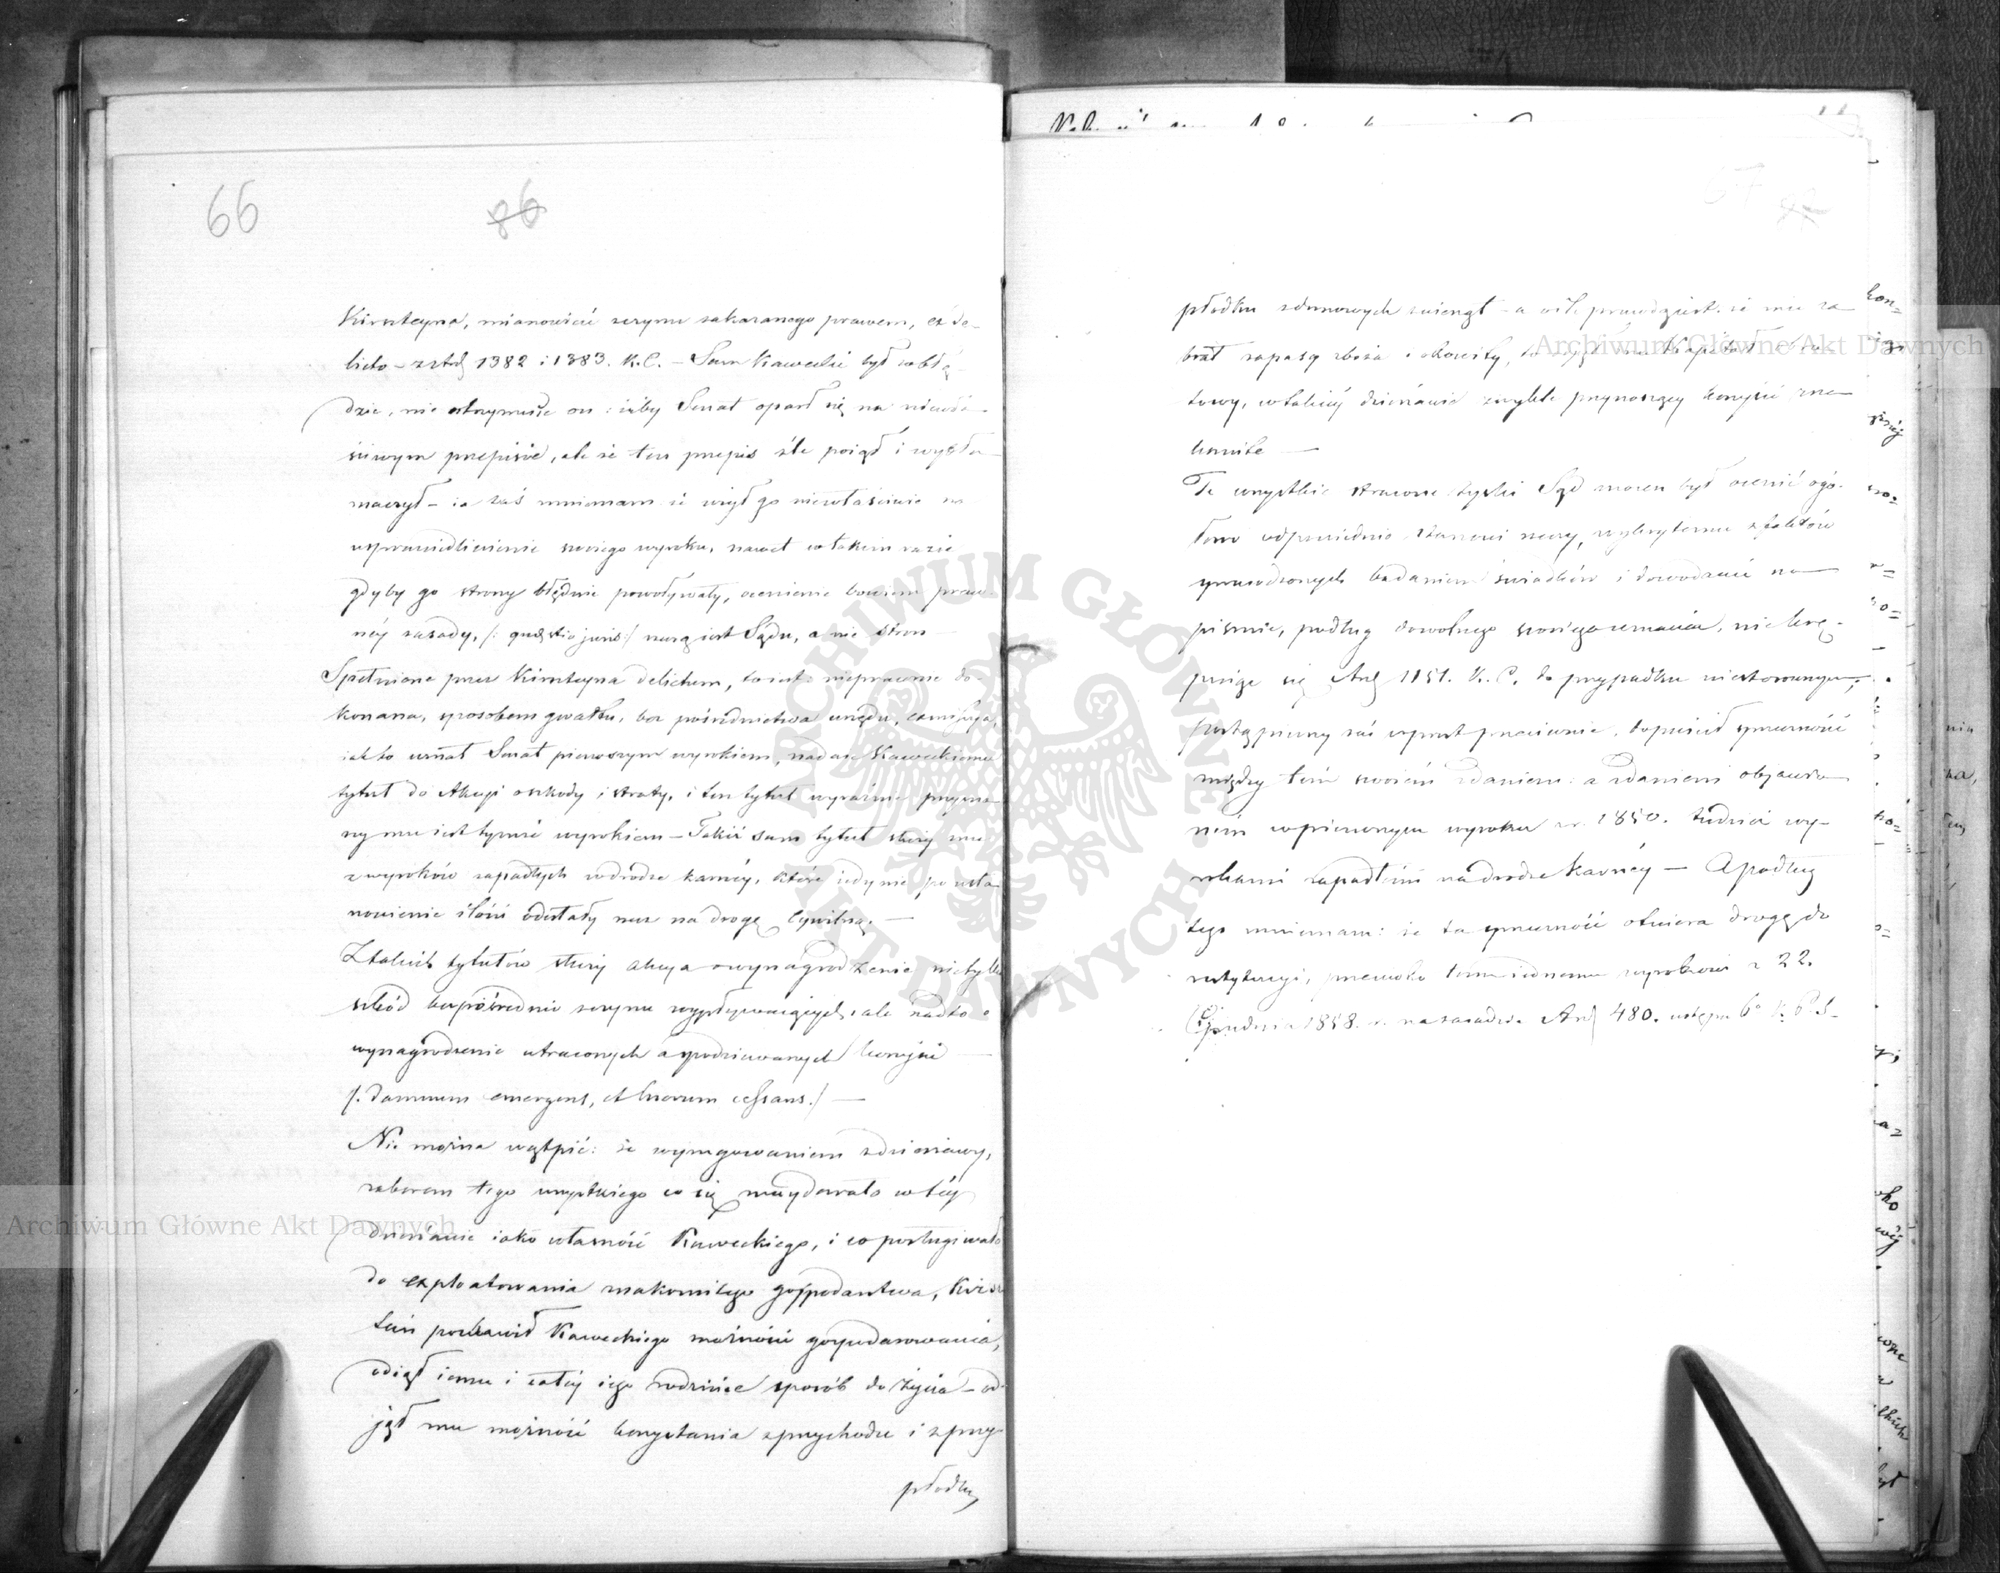 66 86
Kirsteyna, mianowicie czynu zakazanego prawem, ex de-
licto – z Art. 1382 i 1383. K.C. – Sam Kawecki był w błę-
dzie, nie utrzymuje on: iżby Senat oparł się na niewła-
ściwym przepisie, ale że ten przepis źle pojął i wytłu-
maczył – ja zaś mniemam że wziął go niewłaściwie na
usprawiedliwienie swojego wyroku, nawet w takim razie
gdyby go strony błędnie powoływały, ocenienie bowiem praw-
nej zasady, /: quęstio juris :/ rzeczą jest Sądu, a nie stron
Spełnione przez Kirsteyna delictum, to jest: nieprawnie do-
konana, sposobem gwałtu, bez pośrednictwa urzędu,
jak to uznał Senat pierwszym wyrokiem, nadaje Kaweckiemu
tytuł do Akcyi o szkody i straty, i ten tytuł wyraźnie przyzna-
ny mu jest tymże wyrokiem – Takiż sam tytuł służy mu
z wyroków zapadłych w drodze karnej, które jedynie, po usta-
nowienie ilości odesłały rzecz na drogę Cywilną. –
Z takich tytułów służy akcya o wynagrodzenie nietylko
szkód bezpośrednio z czynu wypływających, ale nadto o
wynagrodzenie utraconych a spodziewanych korzyści –
/: damnum emergens, et lucrum cessans. :/ –
Nie można wątpić: że wyrugowaniem z dzierżawy,
zaborem tego wszystkiego co się znajdowało w tej
dzierżawie jako własność Kaweckiego, i co posługiwało
do exploatowania znakomitego gospodarstwa, Kirs-
tein pozbawił Kaweckiego możności gospodarowania,
odjął jemu i całej jego rodzinie sposób do życia – od-
jął mu możność korzystania z przychodu i z przy-
płodku
płodku zdunowych zwierząt – a jeśli prawdą jest: że mu za-
brał zapasy zboża i okowity, to zajął mu kapitał obro-
towy, w takiej dzierżawie zwykle przynoszący korzyści zna-
komite –
Te wszystkie stracone zyski Sąd mocen był ocenić ogó-
łowo odpowiednio stanowi rzeczy, wykrytemu z faktów
sprawdzonych badaniem świadków i dowodami na
piśmie, podług dowolnego swojego uznania, nie krę-
pując się Art. 1151. K. C. do przypadku niestosownym;
postąpiwszy zaś wprost przeciwnie, dopuścił sprzeczność
między tem swoiém zdaniem: a zdaniem objawio-
nem w pierwszym wyroku z r. 1850. tudzież wy-
rokami zapadłemi na drodze karnéy – A podług
tego mniemam: że ta sprzeczność otwiera drogę do
restytucyi, przeciwko temu jednemu wyrokowi z 22.
Grudnia 1858. r. na zasadzie Art. 480. ustępu 6º K. P. S.
Archiwum Główne Akt Dawnych
Archiwum Główne Akt Dawnych
ARCHIWUM GŁÓWNE AKT DAWNYCH